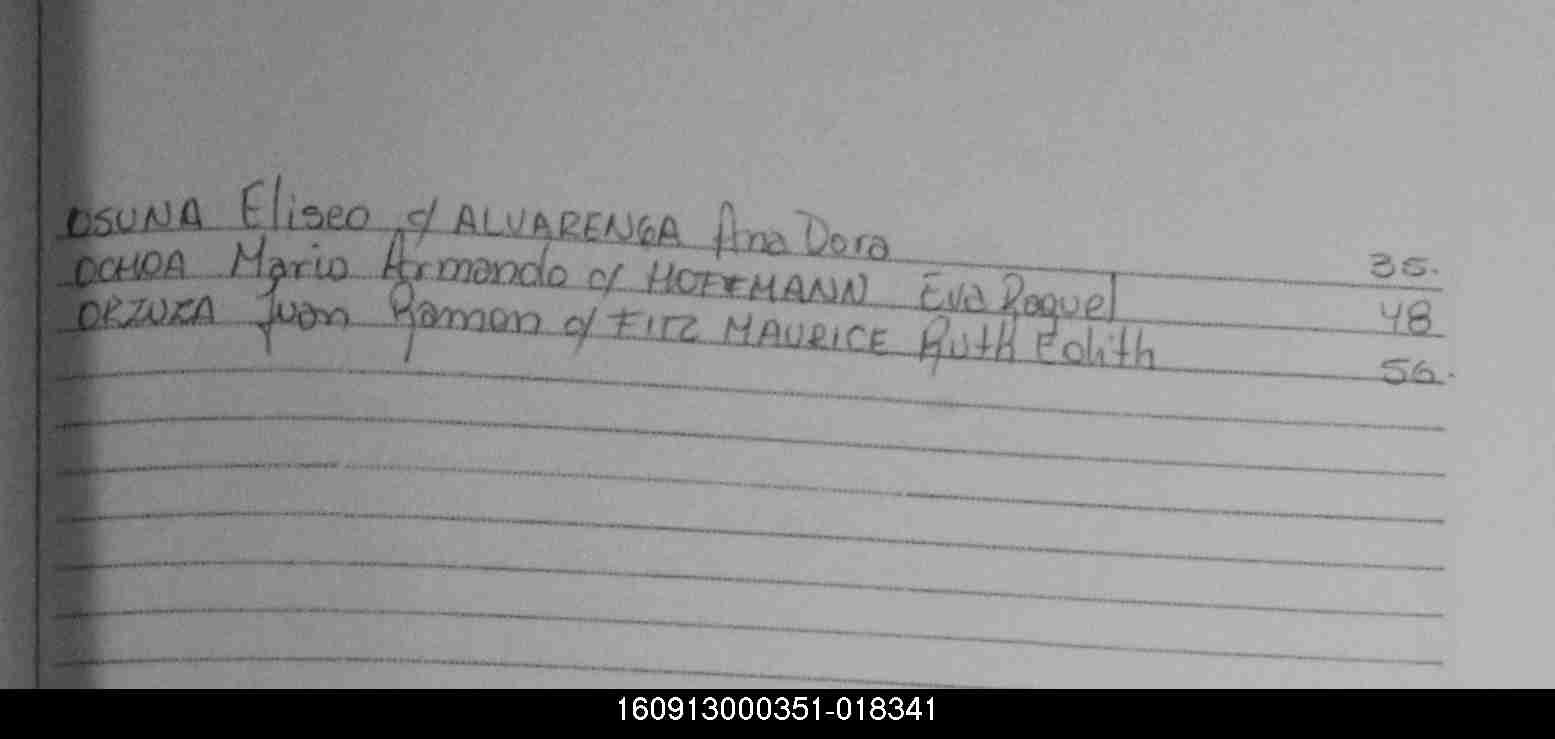 OSUNA Eliseo c/ ALVARENGA Ana Dora 35.
OCHOA Mario Armando c/ HOFFMANN Eva Raquel 48
ORZUZA Juan Ramon c/ FITZ MAURICE Ruth Edith 56.
160913000351-018341